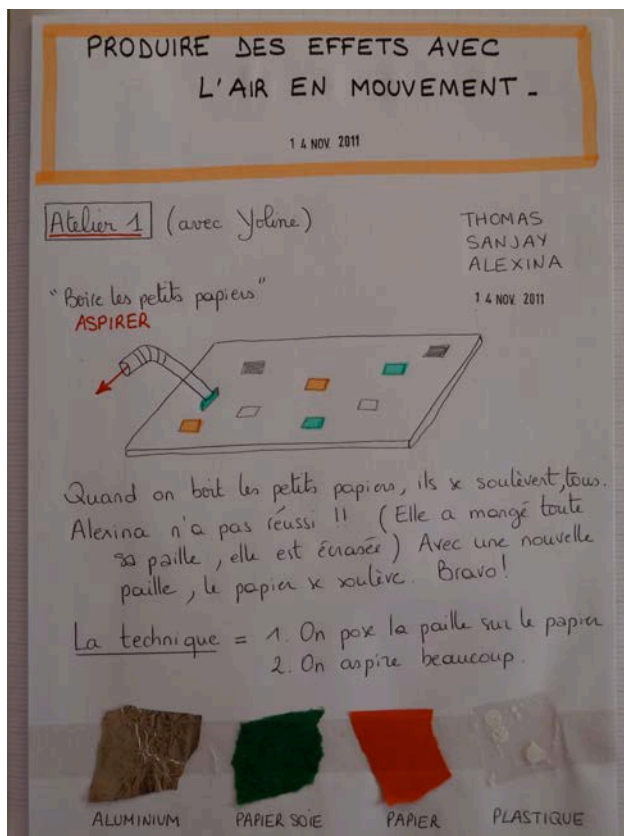 PRODUIRE DES EFFETS AVEC
L'AIR EN MOUVEMENT_
14 NOV. 2011
Atelier 1 (avec Yoline)
THOMAS
SANJAY
ALEXINA
14 NOV. 2011
"Boire les petits papiers"
ASPIRER
Quand on boit les petits papiers, ils se soulèvent, tous.
Alexina n'a pas réussi !! (Elle a mangé toute
sa paille, elle est écrasée) Avec une nouvelle
paille, le papier se soulève. Bravo!
La technique = 1. On pose la paille sur le papier
2. On aspire beaucoup.
ALUMINIUM
PAPIER SOIE
PAPIER
PLASTIQUE